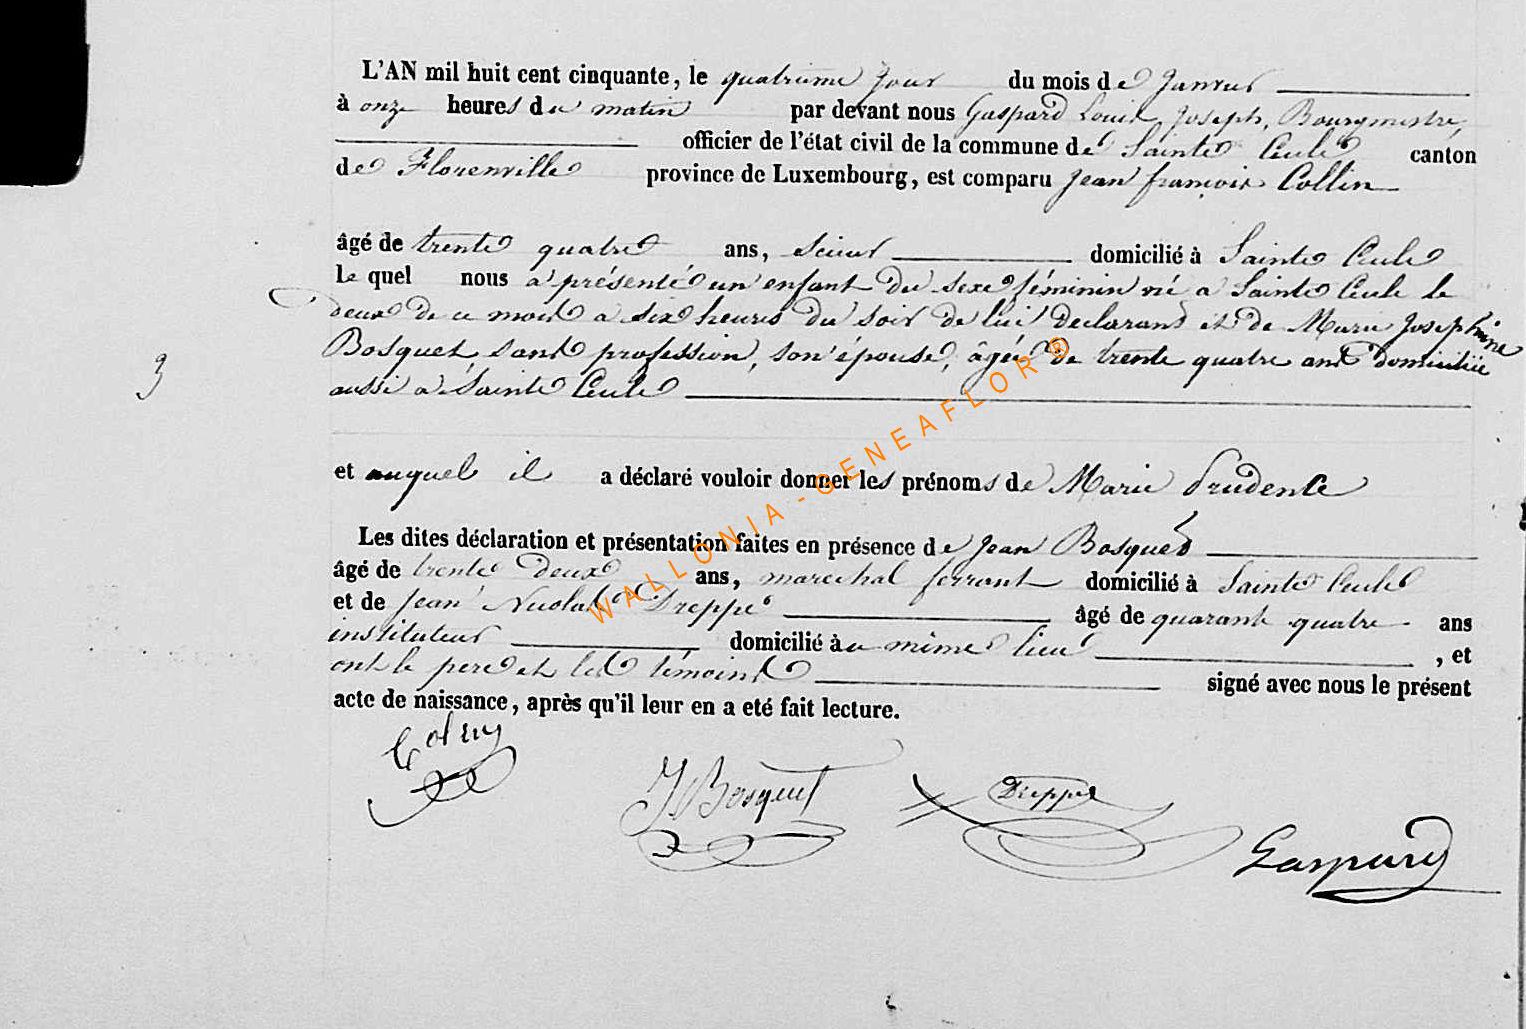 L'AN mil huit cent cinquante, le quatrieme jour du mois de Janvier
à onze heures du matin par devant nous Gaspard Louis Joseph, Bourgmestre,
officier de l'état civil de la commune de Sainte Cecile canton
de Florenville province de Luxembourg, est comparu Jean françois Collin
âgé de trente quatre ans, scieur domicilié à Sainte Cecile
le quel nous a présenté un enfant du sexe féminin né a Sainte Cecile le
deux de ce mois a six heures du soir de lui declarans et de Marie Josephinne
Bosquet, sans profession, son épouse, âgée de trente quatre ans domiciliée
3
aussi a Sainte Cecile
et auquel il a déclaré vouloir donner les prénoms de Marie Prudente
Les dites déclaration et présentation faites en présence de Jean Bosquet
âgé de trente deux ans, marechal ferrant domicilié à Sainte Cecile
et de Jean Nicolas Dreppe âgé de quarante quatre ans
instituteur domicilié au même lieu , et
ont le pere et les témoins signé avec nous le présent
acte de naissance, après qu'il leur en a eté fait lecture.
J Bosquet Dreppe Gaspard
WALLONIA - GENEAFLOR ®